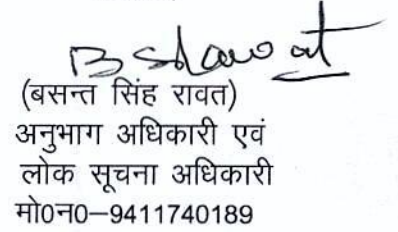 B S Rawat
(बसन्त सिंह रावत)
अनुभाग अधिकारी एवं
लोक सूचना अधिकारी
मो0न0–9411740189